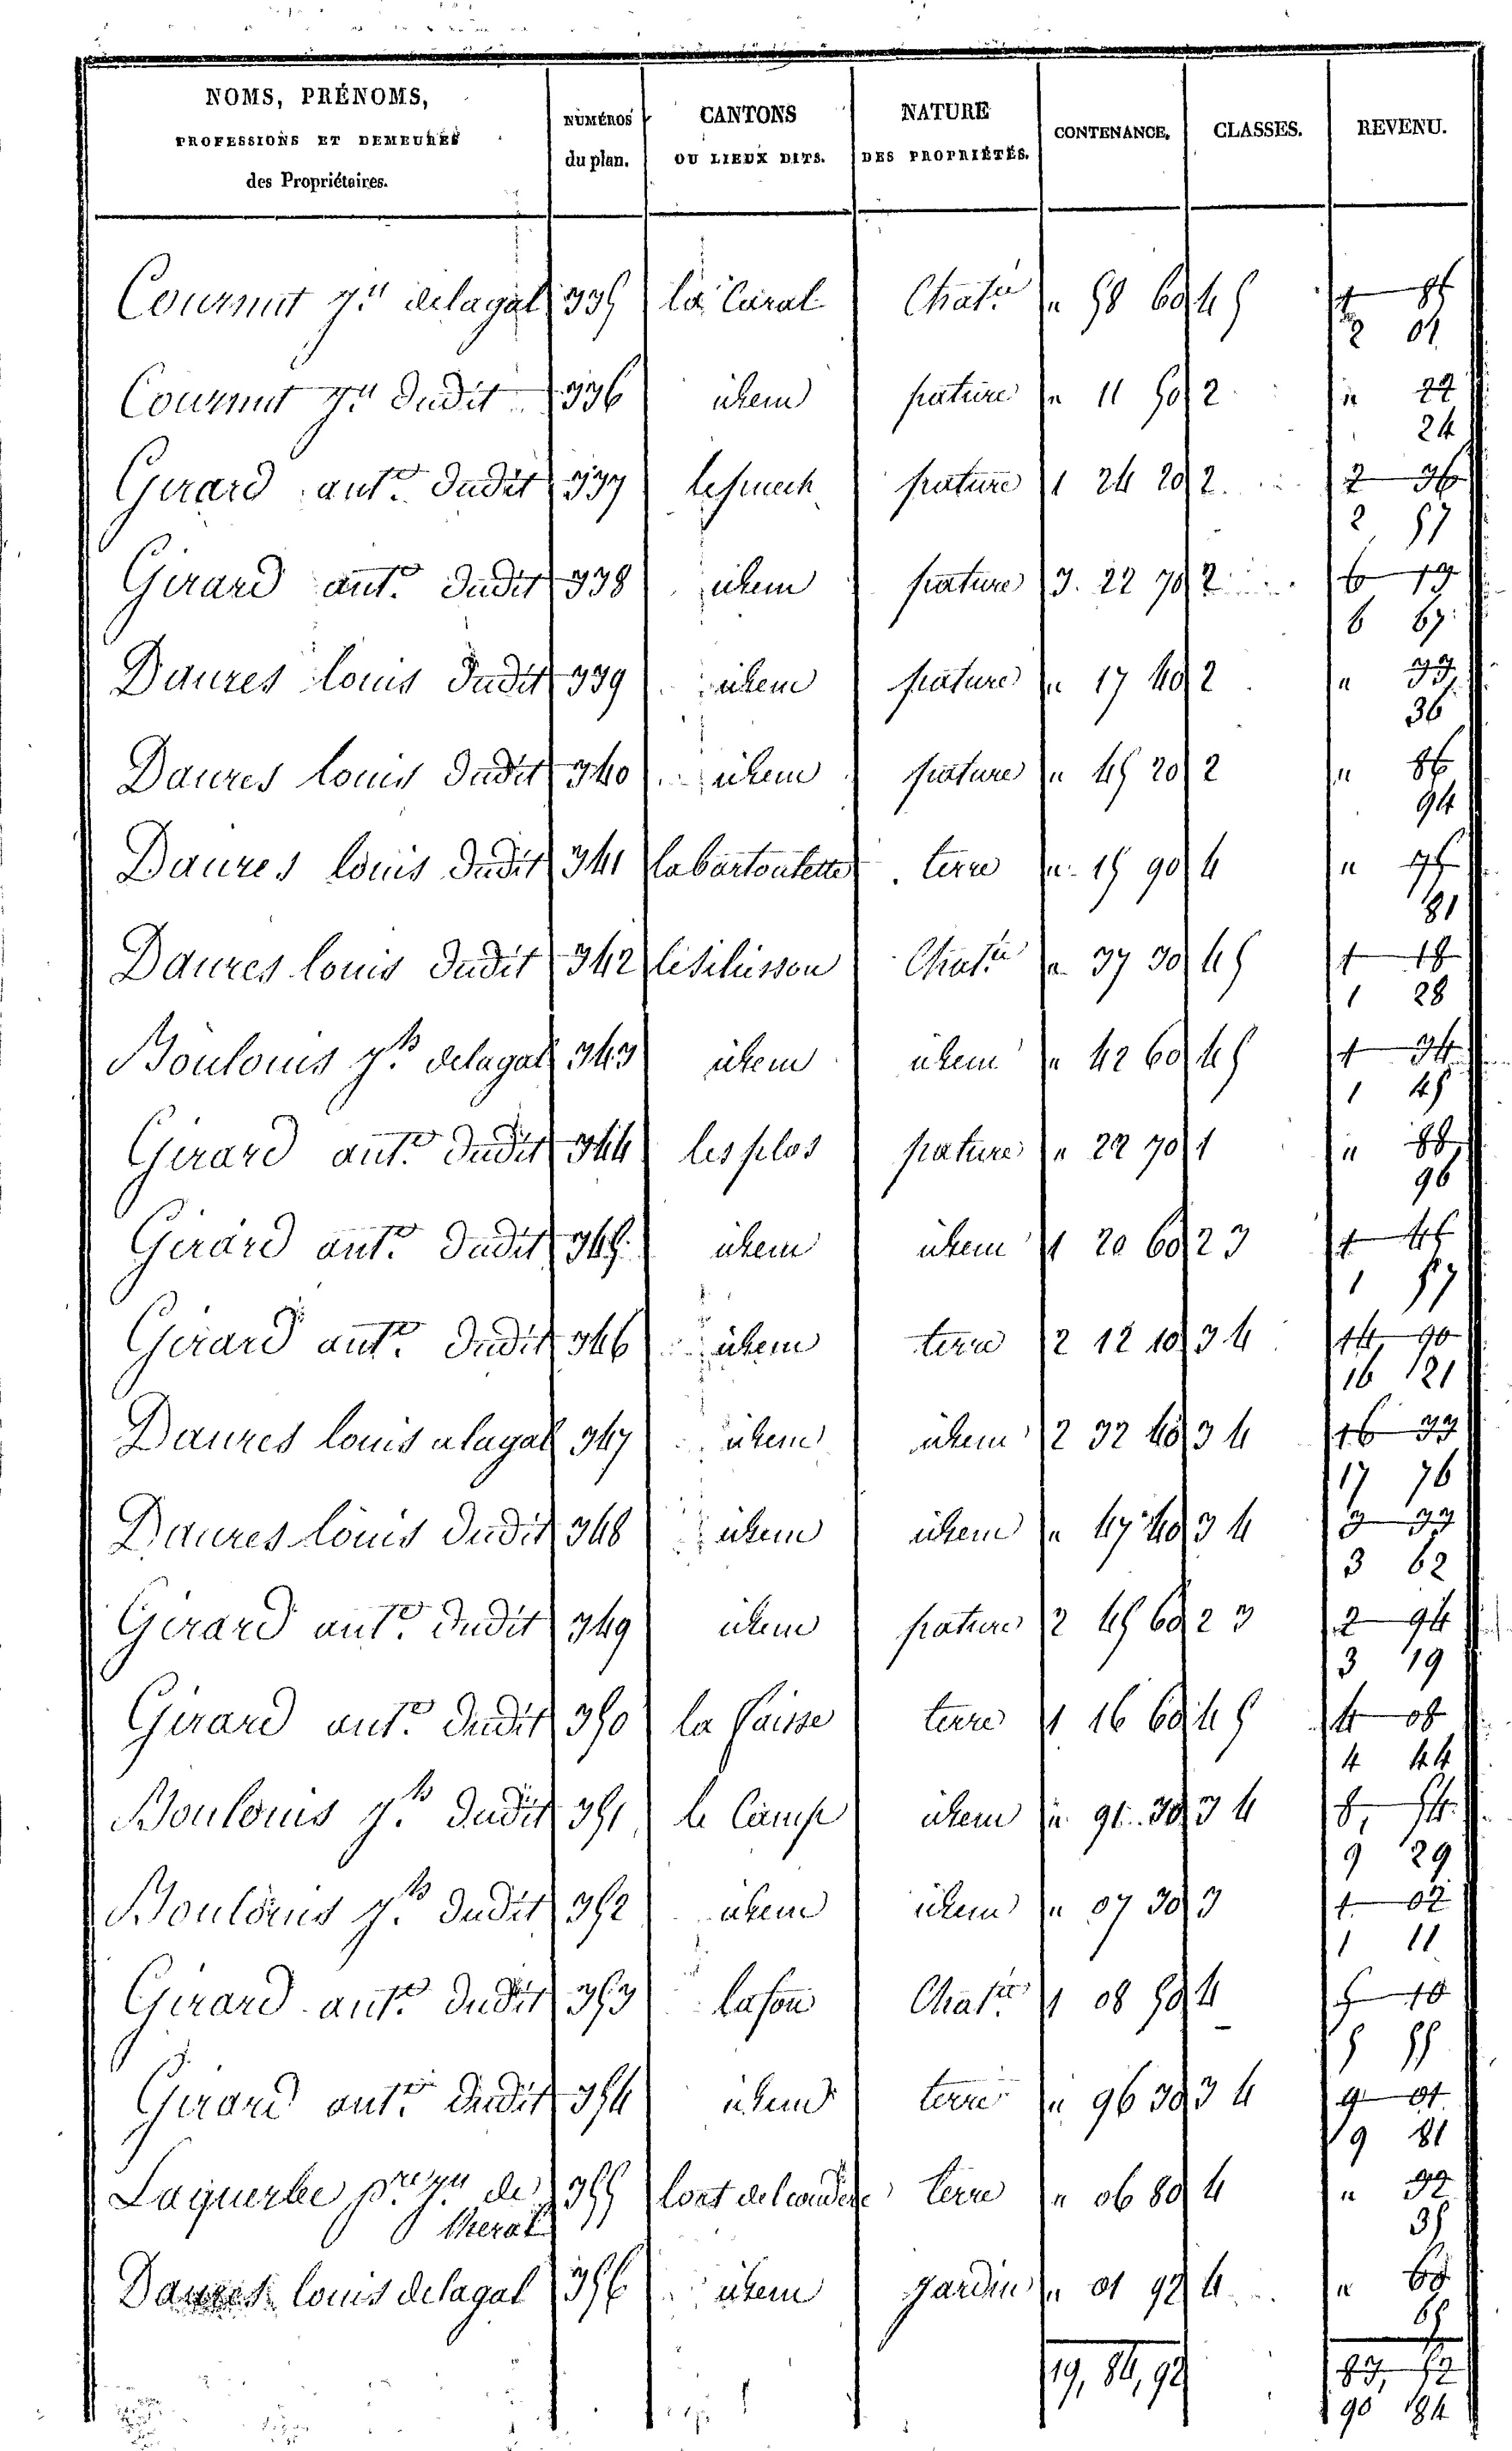 NOMS, PRÉNOMS, PROFESSIONS ET DEMEURES des Propriétaires. NUMÉROS du plan. CANTONS OU LIEUX DITS. NATURE DES PROPRIÉTÉS. CONTENANCE. CLASSES. REVENU.
delagal 335 la Caral Chat.re " 58 60 4 5 1 85
2 01
dudit 336 idem pature " 11 50 2 " 22
24
Girard ant.e dudit 337 lepuech pature 1 24 20 2 2 36
2 57
Girard ant.e dudit 338 idem pature 3 22 70 2 6 13
6 67
Daures louis dudit 339 idem pature " 17 40 2 " 33
36
Daures louis dudit 340 idem pature " 45 20 2 " 86
94
Daures louis dudit 341 labartoulette terre " 15 90 4 " 75
81
Daures louis dudit 342 Chat.re " 37 30 4 5 1 18
1 28
Boulouis delagal 343 idem idem " 42 60 4 5 1 34
1 45
Girard ant.e dudit 344 les plos pature " 22 70 1 " 88
96
Girard ant.e dudit 345 idem idem 1 20 60 2 3 1 45
1 57
Girard ant.e dudit 346 idem terre 2 12 10 3 4 14 90
16 21
Daures louis alagal 347 idem idem 2 32 40 3 4 16 33
17 76
Daures louis dudit 348 idem idem " 47 40 3 4 3 33
3 62
Girard ant.e dudit 349 idem pature 2 45 60 2 3 2 94
3 19
Girard ant.e dudit 350 la terre 1 16 60 4 5 4 08
4 44
Boulouis dudit 351 le Camp idem " 91 30 3 4 8 54
9 29
Boulouis dudit 352 idem idem " 07 30 3 1 02
1 11
Girard ant.e dudit 353 lafon Chat.re 1 08 50 4 5 10
5 55
Girard ant.e dudit 354 idem terre " 96 30 3 4 9 01
9 81
Laquerbe de 355 terre " 06 80 4 " 32
35
Daures louis delagal 356 idem jardin " 01 92 4 " 60
65
19, 84, 92 83, 52
90 84